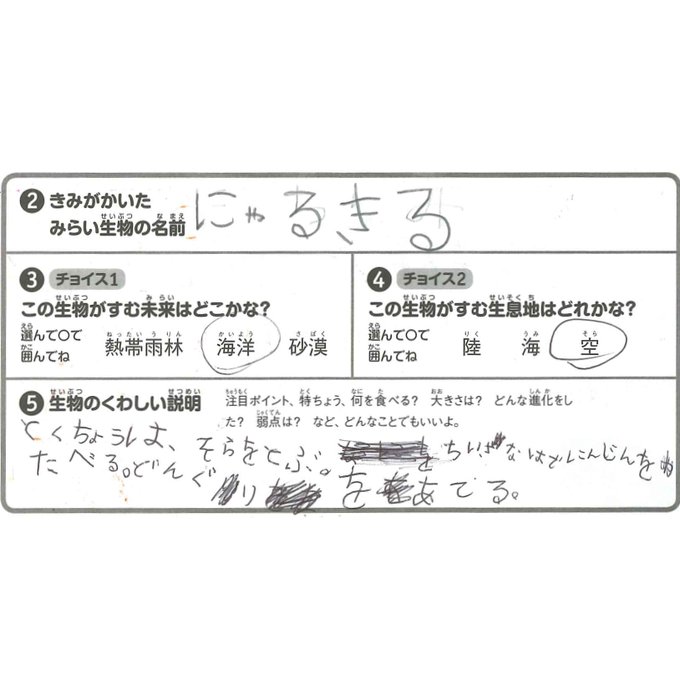 ② きみがかいた
みらい生物の名前 にゃるきる
③ チョイス1
この生物がすむ未来はどこかな?
選んで○で囲んでね 熱帯雨林 海洋 砂漠
④ チョイス2
この生物がすむ生息地はどれかな?
選んで○で囲んでね 陸 海 空
⑤ 生物のくわしい説明 注目ポイント、特ちょう、何を食べる? 大きさは? どんな進化をし
た? 弱点は? など、どんなことでもいいよ。
とくちょうしは、そらをとぶ。を ちい なはとにんじんを
たべる。どんぐりをあてる。